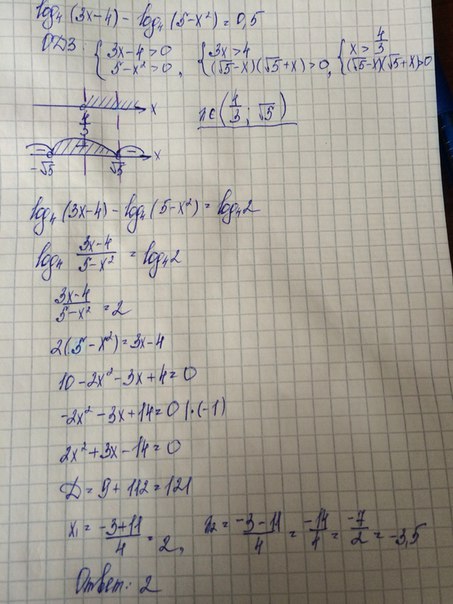 log₄(3x-4) - log₄(5-x²) = 0,5
ОДЗ { 3x-4>0 , { 3x>4 , { x>4/3
5-x²>0 (√5-x)(√5+x)>0 (√5-x)(√5+x)>0
x
4/3
x∈(4/3; √5)
- + - x
-√5 √5
log₄(3x-4) - log₄(5-x²) = log₄2
log₄ (3x-4)/(5-x²) = log₄2
(3x-4)/(5-x²) = 2
2(5-x²) = 3x-4
10-2x²-3x+4=0
-2x²-3x+14=0 |·(-1)
2x²+3x-14=0
D = 9+112=121
x₁ = (-3+11)/4 = 2, x₂ = (-3-11)/4 = -14/4 = -7/2 = -3,5
Ответ: 2